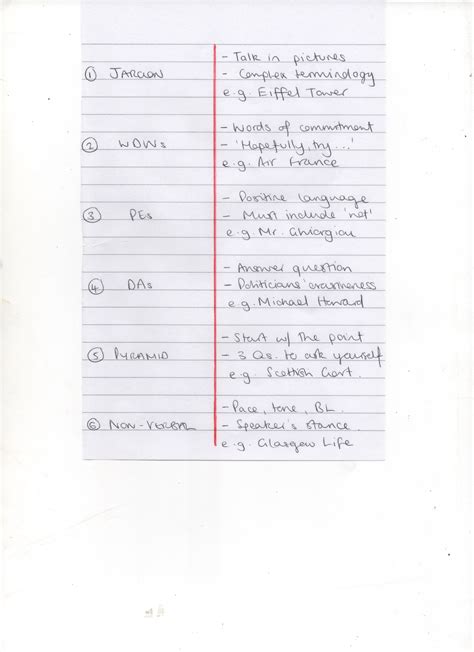 ① JARGON
- Talk in pictures
- Complex terminology
e.g. Eiffel Tower
②
- Words of commitment
- 'Hopefully, try...'
e.g. Air France
③ PEs
- Positive language
- Must include 'not'
e.g. Mr.
④ DAs
- Answer question
- Politicians' evasiveness
e.g. Michael Howard
⑤ PYRAMID
- Start w/ the point
- 3 Qs. to ask yourself
e.g. Scottish Govt.
⑥ NON-VERBAL
- Pace, tone, BL.
- Speaker's stance
e.g. Glasgow Life